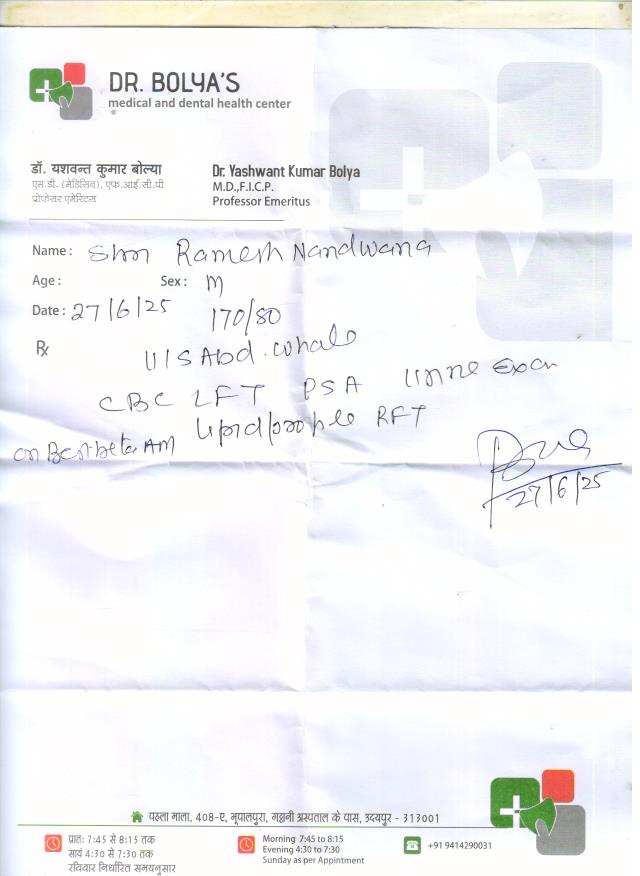 DR. BOLYA'S
medical and dental health center
डॉ. यशवन्त कुमार बोल्या
एम.डी. (मेडिसिन), एफ.आई.सी.पी
प्रोफेसर एमेरिटस
Dr. Yashwant Kumar Bolya
M.D.,F.I.C.P.
Professor Emeritus
Name : Shri Ramesh Nandwana
Age : Sex : M
Date : 27/6/25 170/80
Rx U/S Abd. whole
CBC LFT PSA Urine Exam
on AM Lipid profile RFT
27/6/25
पहला माला, 408-ए, भूपालपुरा, गट्टानी अस्पताल के पास, उदयपुर - 313001
प्रातः 7:45 से 8:15 तक
सायं 4:30 से 7:30 तक
रविवार निर्धारित समयनुसार
Morning 7:45 to 8:15
Evening 4:30 to 7:30
Sunday as per Appintment
+91 9414290031